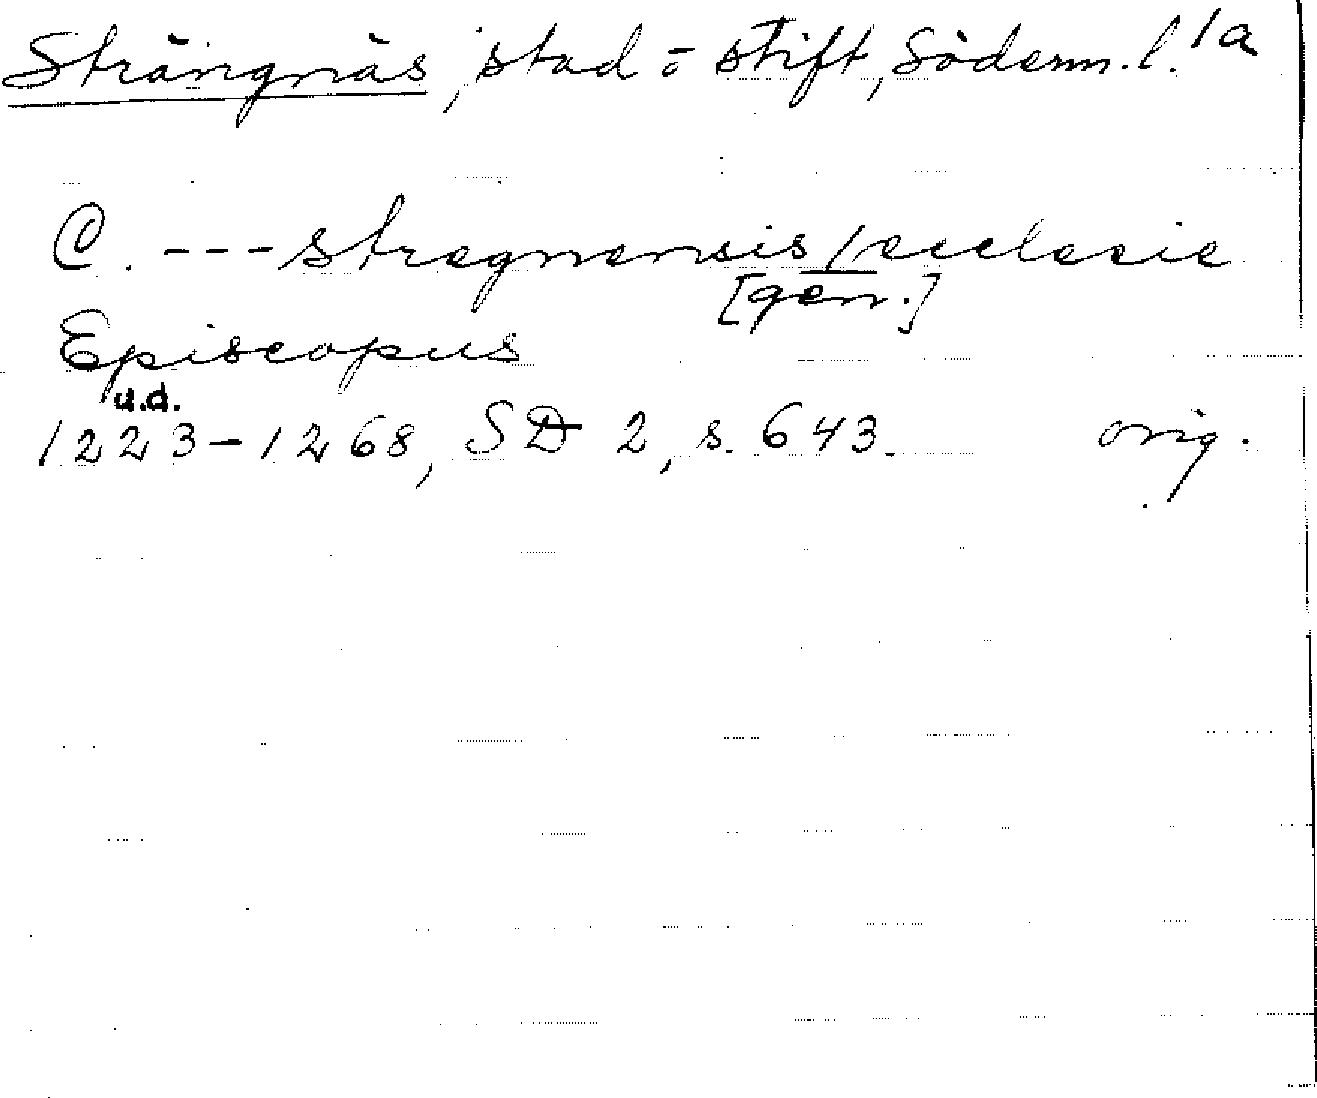 Strängnäs, stad o stift, Söderm. l. 1a
C. --- stregnensis / ecclesie
[gen.]
Episcopus
u.d.
1223-1268, SD 2, s. 643. orig.